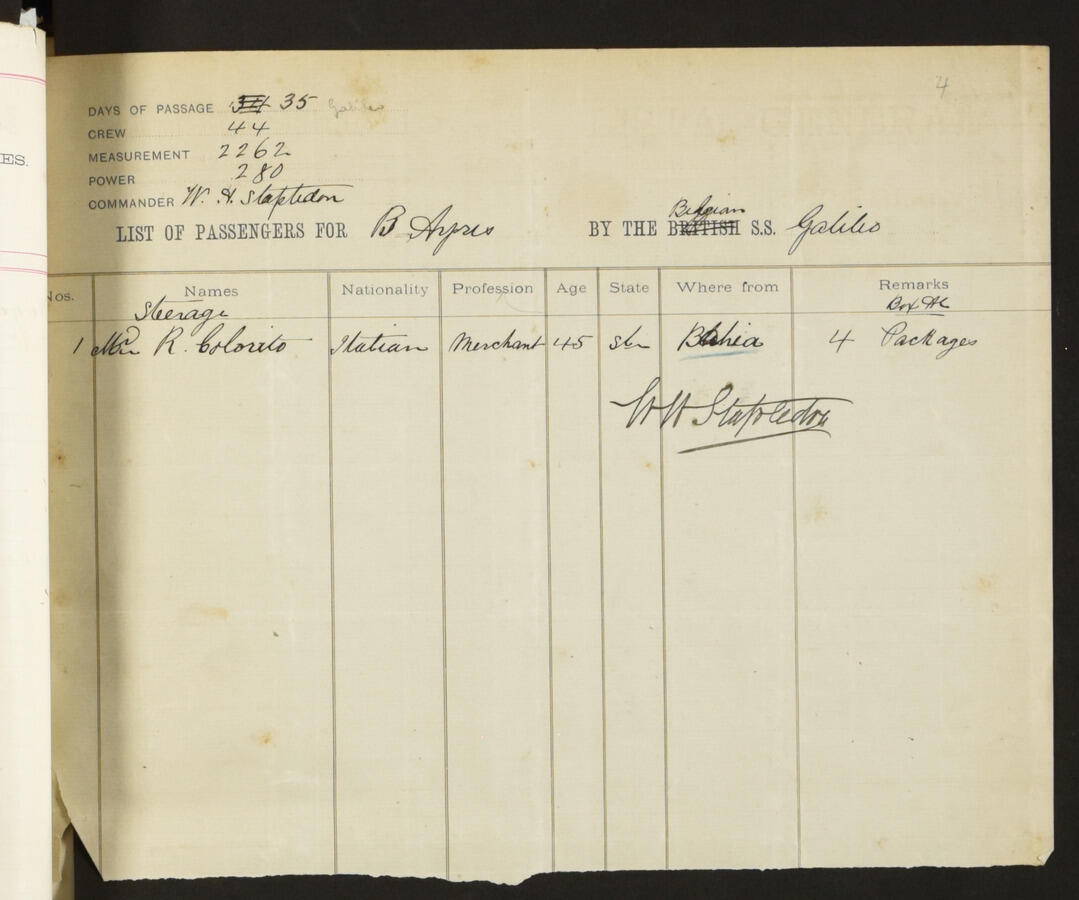 4
ES.
DAYS OF PASSAGE 34 35 Galileo
CREW 44
MEASUREMENT 2262
POWER 280
COMMANDER W. H. Stapledon
LIST OF PASSENGERS FOR B Ayres BY THE BRITISH Belgian S.S. Galileo
Nos. Names Nationality Profession Age State Where from Remarks
Steerage
1 R. Colorito Italian Merchant 45 Str Bahia 4 Packages
W H Stapledon